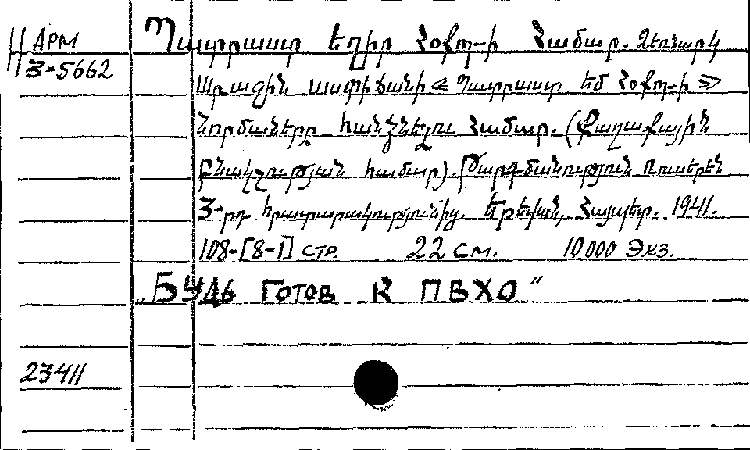 АРМ
Պատրաստ եղիր ՀՕՔՊ-ի Համար. Ձեռնարկ
3-5662
առաջին աստիճանի «Պատրաստ եմ ՀՕՔՊ-ի»
նորմաները հանձնելու համար. (Քաղաքային
բնակչության համար). Թարգմանություն ռուսերեն
3-րդ հրատարակությունից. Երեվան, Հայպետ. 1941.
108-[8-1] стр. 22 см. 10000 экз.
„Будь готов к ПВХО“
23411